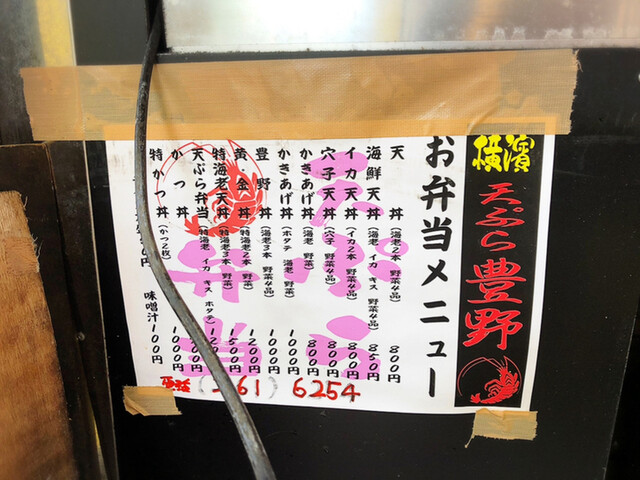 横濱
天ぷら 豊野
お弁当メニュー
天丼(海老2本 野菜4品) 800円
海鮮天丼(海老 イカ キス 野菜4品) 850円
イカ天丼(イカ2本 野菜4品) 800円
穴子天丼(穴子 野菜4品) 800円
かきあげ丼(海老 野菜) 800円
かきあげ丼(ホタテ 海老 野菜) 1000円
豊野丼(海老3本 野菜4品) 1000円
黄金丼(特海老2本 野菜) 1200円
特海老天丼(特海老3本 野菜) 1500円
天ぷら弁当(特海老 イカ キス ホタテ)
かつ丼 1000円
特かつ丼(かつ2枚)
味噌汁100円
電話 61) 6254